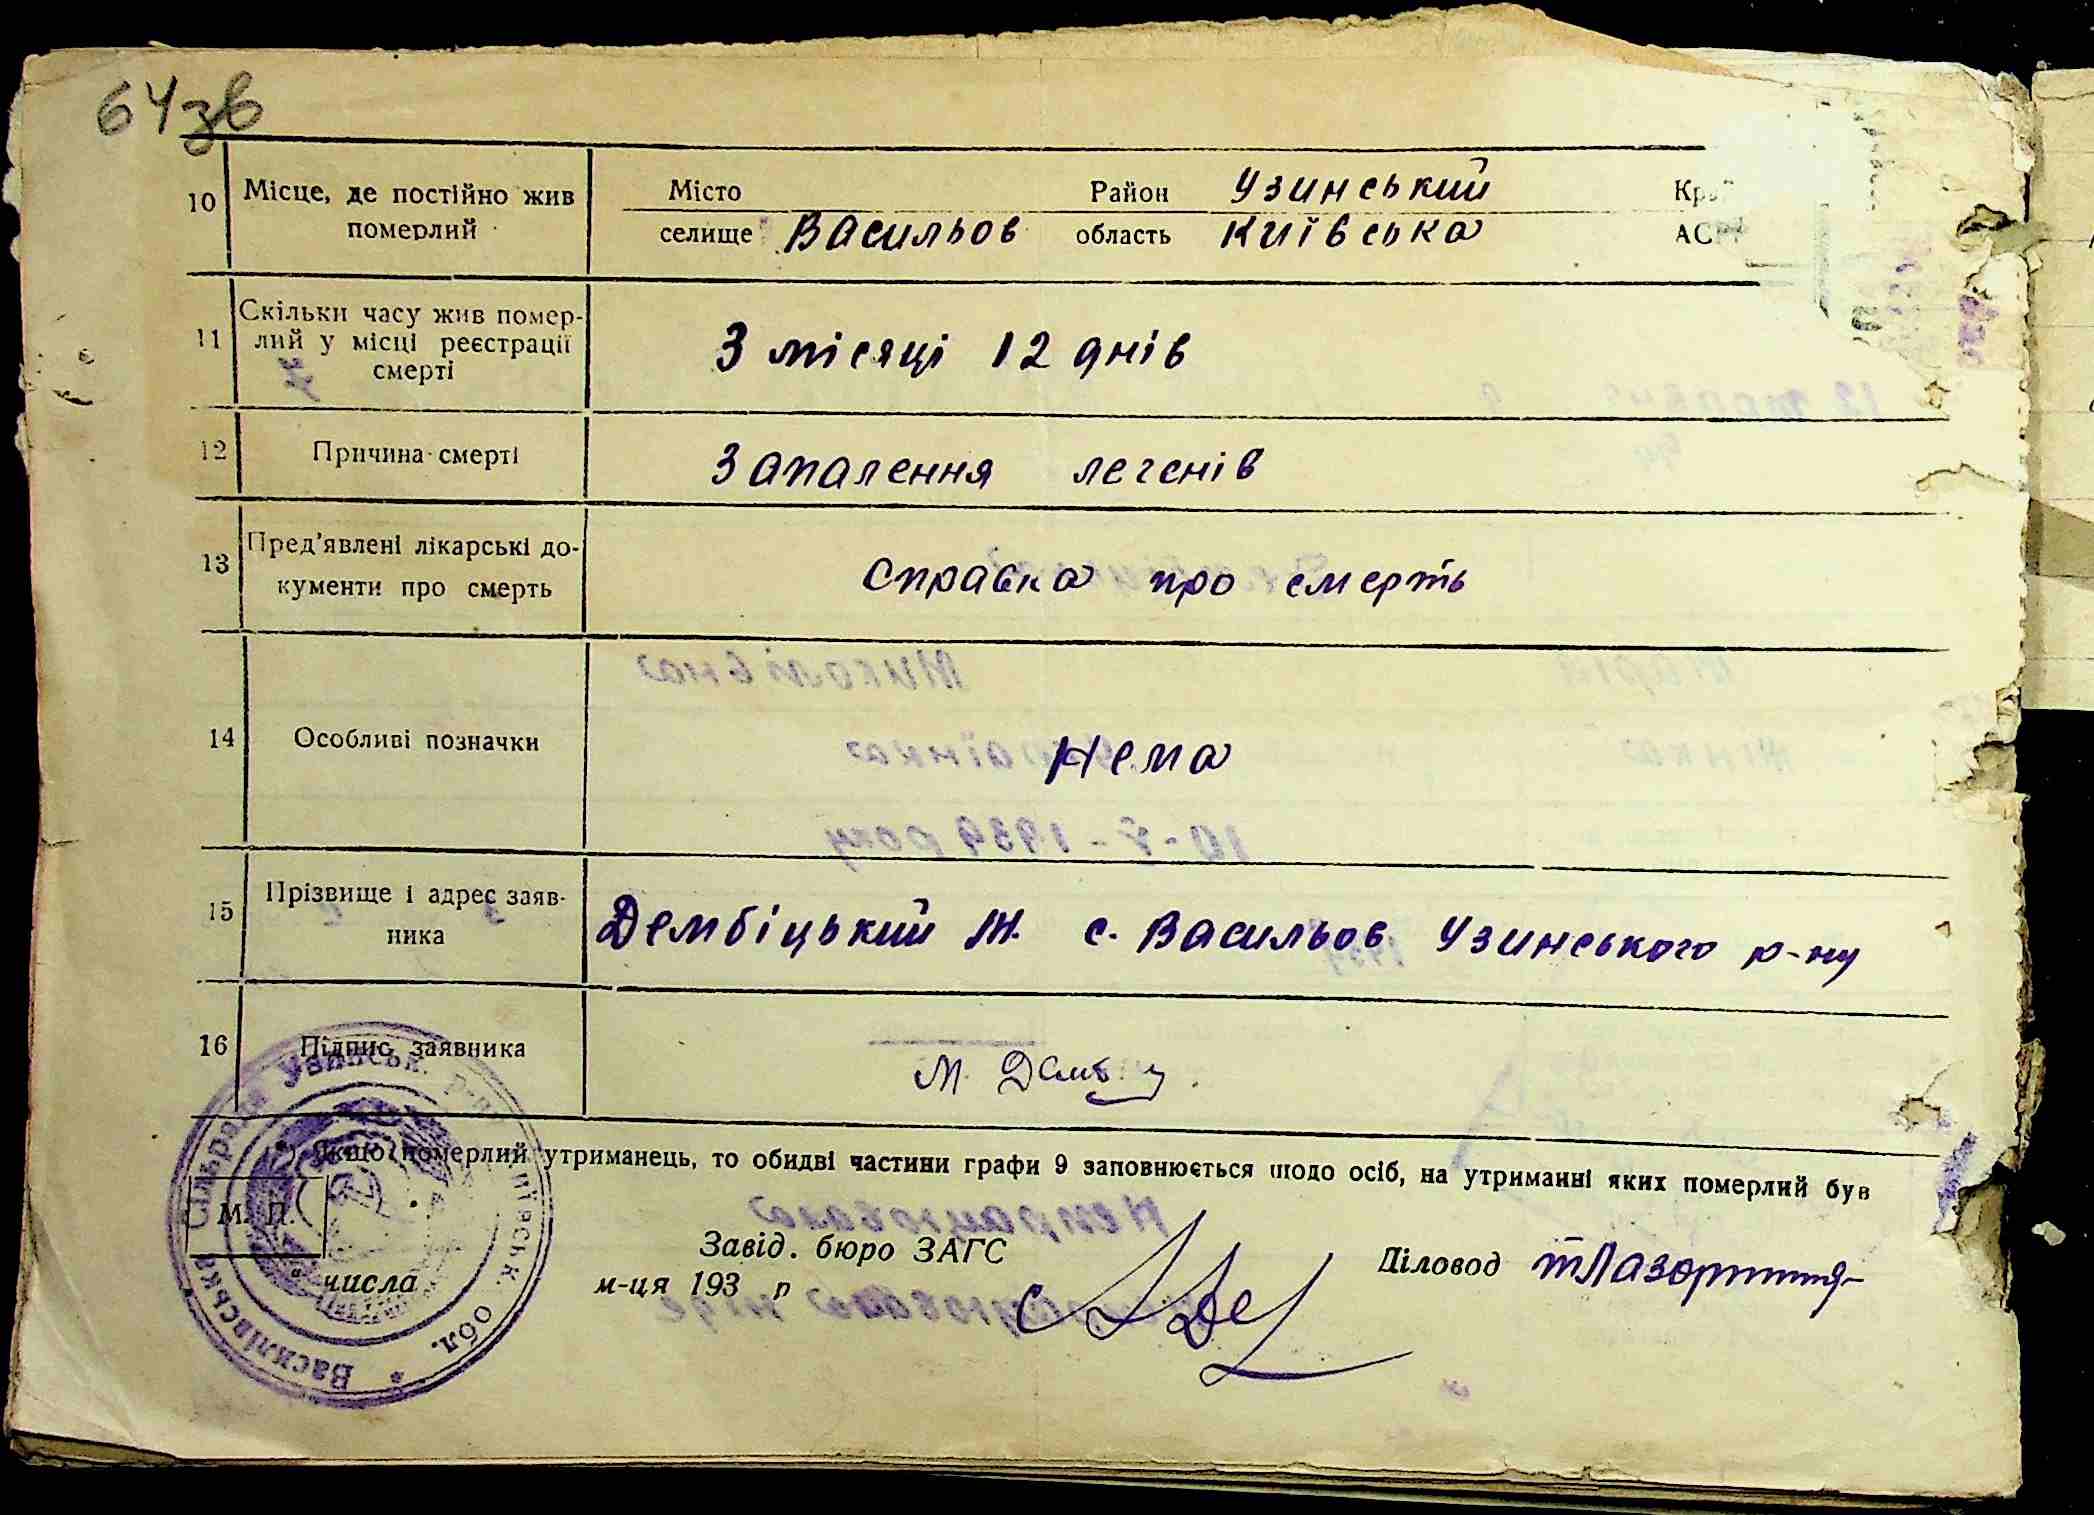 64зв
10 Місце, де постійно жив померлий Місто Район Узинський Кр
селище Васильов область Київська АС
11 Скільки часу жив помер-
лий у місці реєстрації
смерті
3 місяці 12 днів
12 Причина смерті Запалення легенів
13 Пред'явлені лікарські до-
кументи про смерть
Справка про смерть
14 Особливі позначки Нема
15 Прізвище і адрес заяв-
ника
Дембіцький М. с. Васильов Узинського р-ну
16 Підпис заявника
М.
Якщо померлий утриманець, то обидві частини графи 9 заповнюється щодо осіб, на утриманні яких померлий був
М. П.
Завід. бюро ЗАГС Діловод
" числа м-ця 193 р
Василівська сільрада Узинськ. р-н обл.